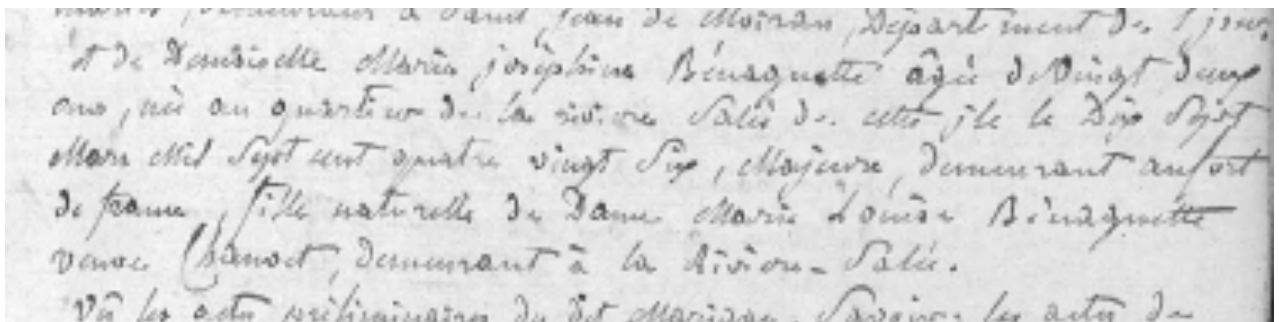 demeurant à Saint jean de Moiran, Département de l'jsere,
et de Demoiselle Marie joséphine Bénaguette âgée de Vingt deux
ans, née au quartier de la rivière Salée de cette jle le Dix Sept
Mars Mil Sept cent quatre vingt Six, Majeure, demeurant au fort
de france, fille naturelle de Dame Marie Louise Bénaguette
veuve Chanoit, demeurant à la Rivière-Salée.
Vû les actes préliminaires du dit Mariage, Savoir: les actes de